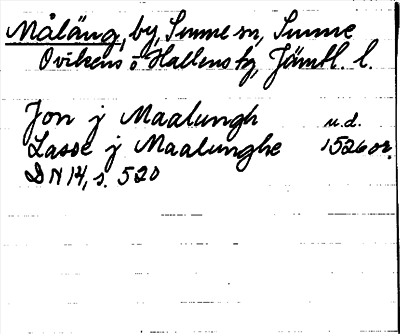 Måläng, by, Sunne sn, Sunne
Ovikens o Hallens tg, Jämtl. l.
Jon j Maalungh u.d.
Lasse j Maalunghe 1526 or.
DN 14, s. 520